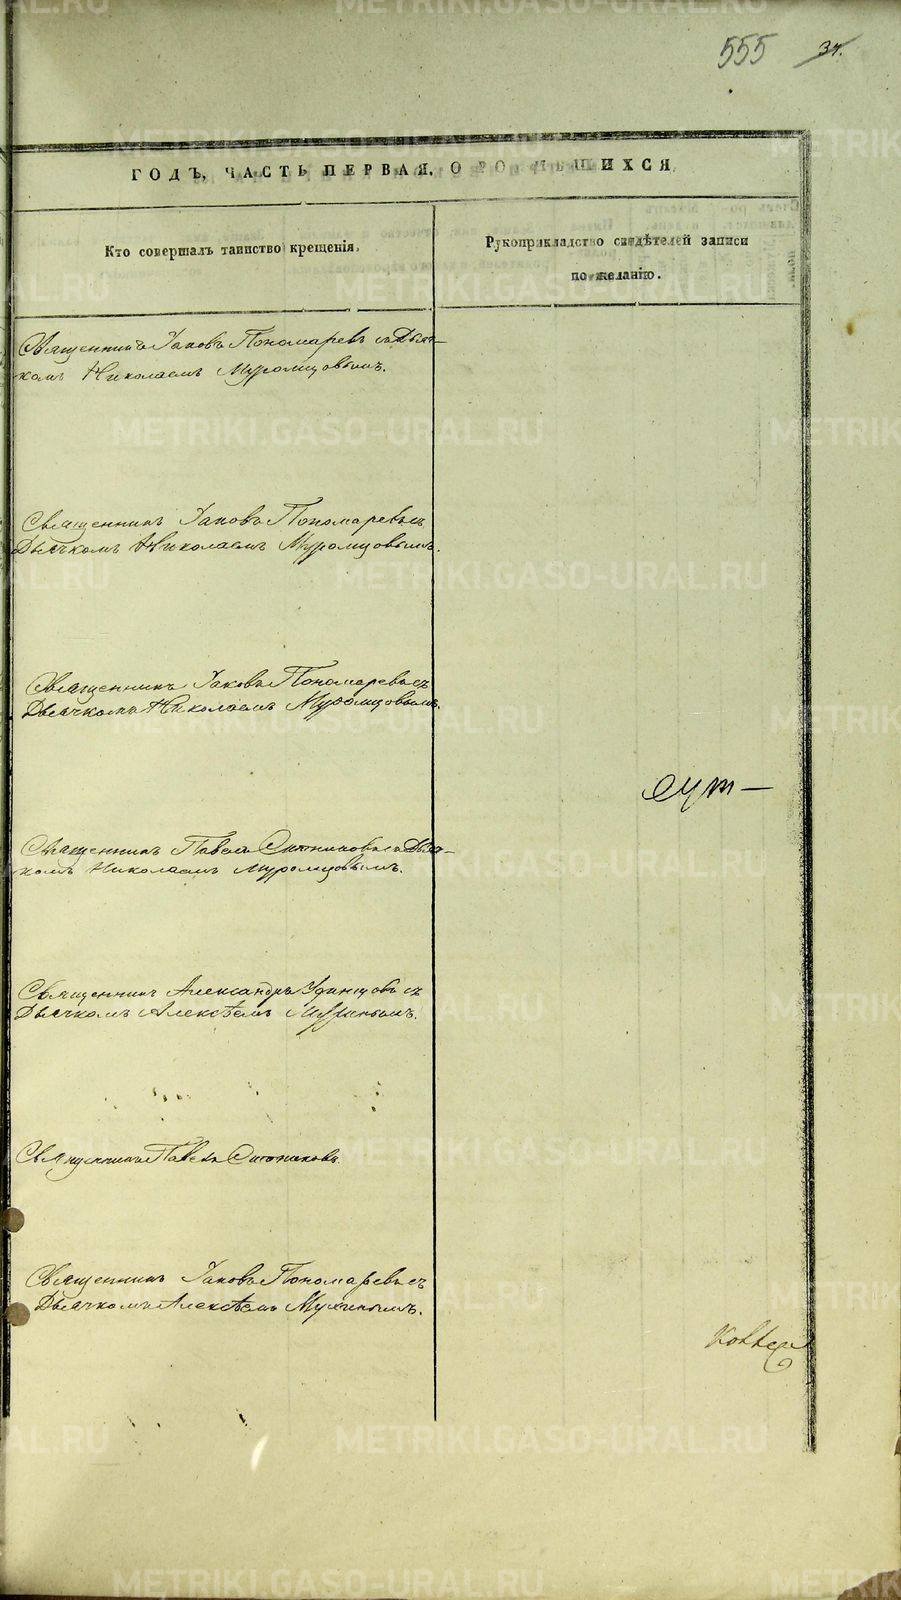 555 34.
ГОДЪ, ЧАСТЬ ПЕРВАЯ, О РО ШИХСЯ
Кто совершалъ таинство крещенія.
Рукоприкладство свидѣтелей записи
по желанію.
Священникъ Іаковъ Пономаревъ съ Дьяч-
комъ Николаемъ Муромцовымъ.
Священникъ Іаковъ Пономаревъ съ
Дьячкомъ Николаемъ Муромцовымъ.
Священникъ Іаковъ Пономаревъ съ
Дьячкомъ Николаемъ Муромцовымъ.
Священникъ Павелъ Ситниковъ съ Дьяч-
комъ Николаемъ Муромцовымъ.
Священникъ Александръ Удинцовъ съ
Дьячкомъ Алексѣемъ
Священникъ Павелъ Ситниковъ.
Священникъ Іаковъ Пономаревъ съ
Дьячкомъ Алексѣемъ
METRIKI.GASO-URAL.RU